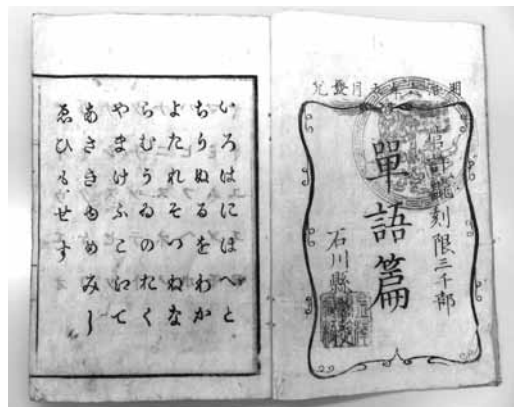 明治六年五月發兌
官許飜刻限三千部
單語篇
石川縣
いろはにほへと
ちりぬるをわか
よたれそつねな
らむうゐのおく
やまけふこえて
あさきゆめみし
ゑひもせす